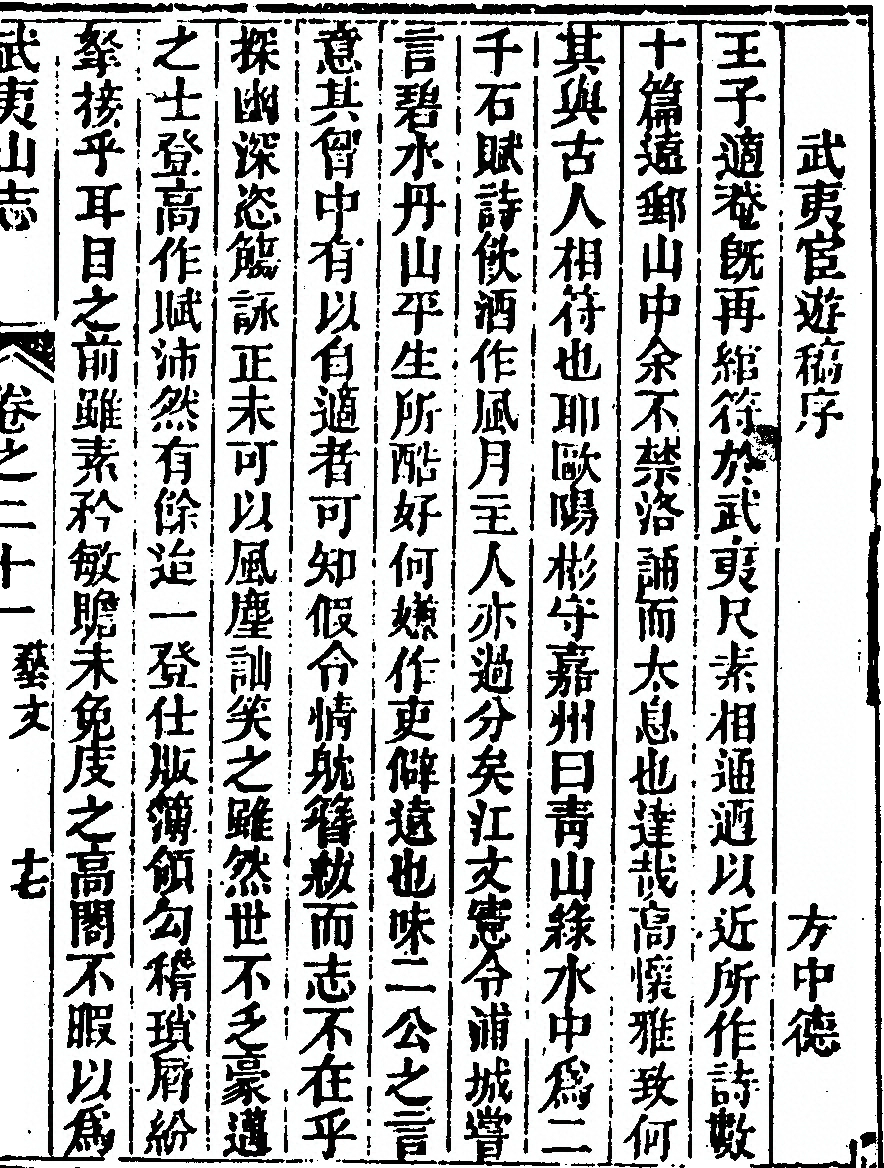 武夷宦遊稿序 方中德
王子適菴旣再綰符於武夷尺素相通迺以近所作詩數
十篇遠郵山中余不禁洛誦而太息也達哉高懷雅致何
其與古人相符也耶歐陽彬守嘉州曰靑山綠水中爲二
千石賦詩飮酒作風月主人亦過分矣江文憲令浦城嘗
言碧水丹山平生所酷好何嫌作吏僻遠也味二公之言
意其胷中有以自適者可知假令情躭簪紱而志不在乎
探幽深恣觴詠正未可以風塵訕笑之雖然世不乏豪邁
之士登高作賦沛然有餘迨一登仕版簿領勾稽瑣屑紛
拏接乎耳目之前雖素矜敏贍未免庋之高閣不暇以爲
武夷山志 卷之二十一 藝文 十七